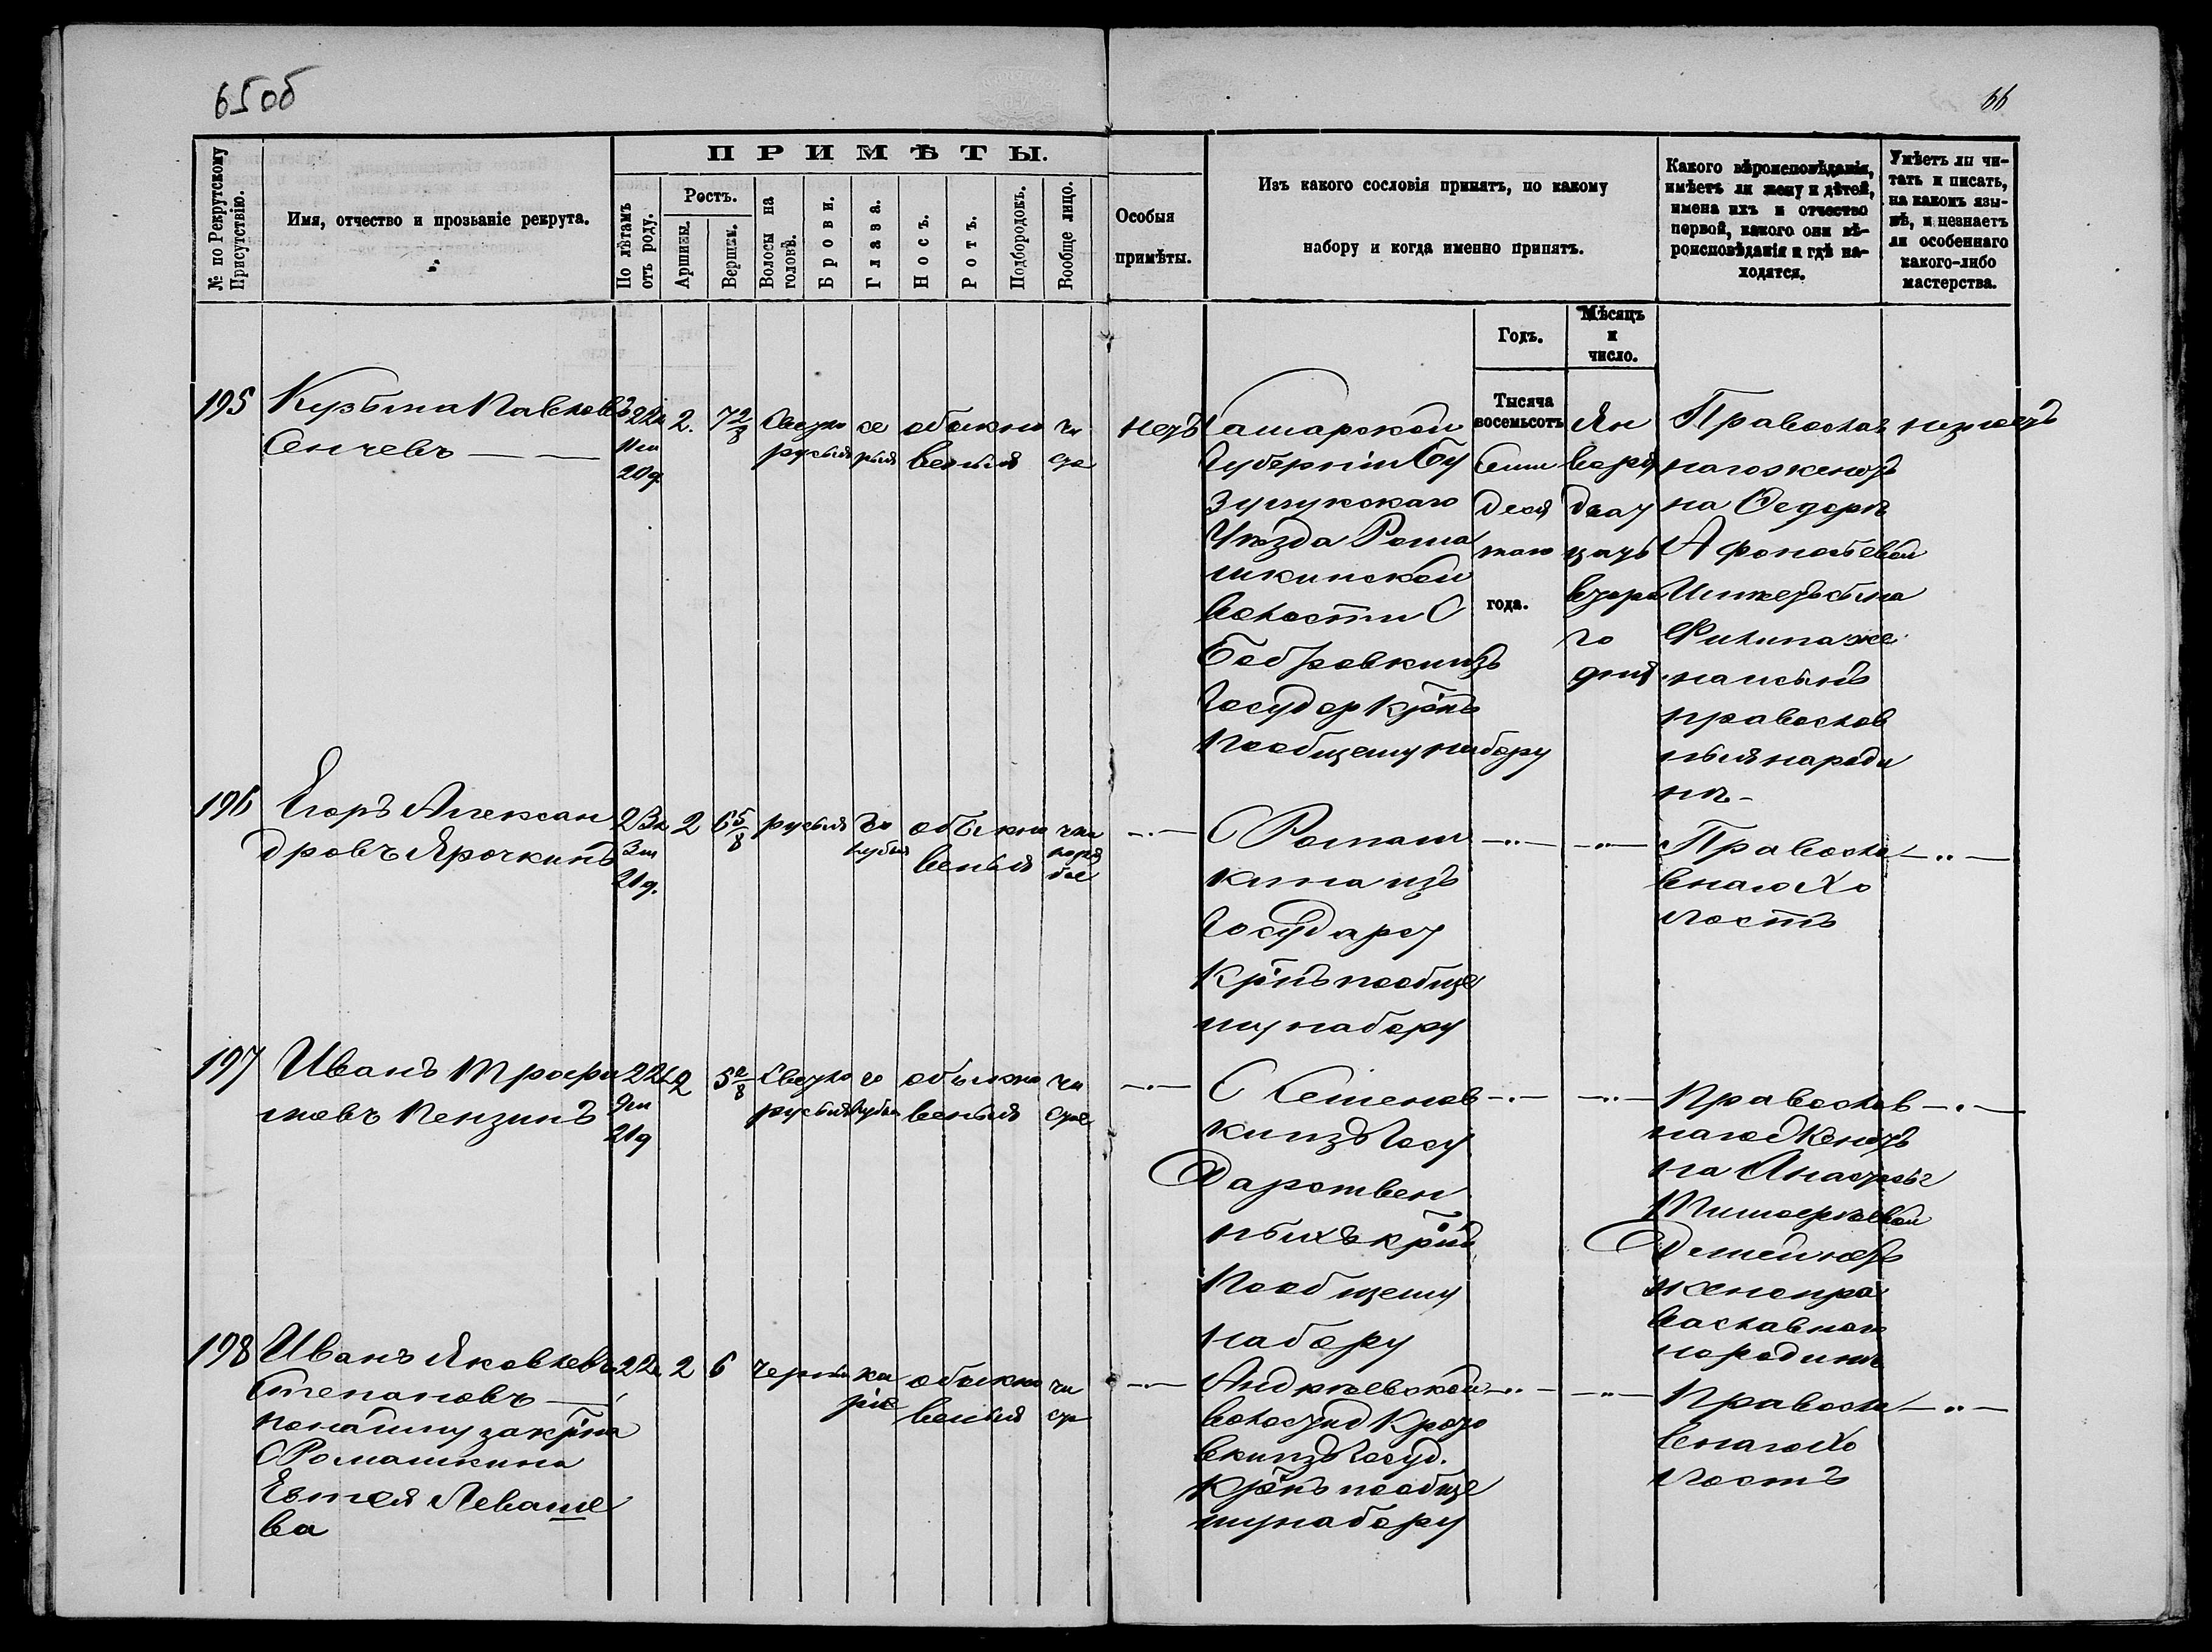 65об
66
№ по Рекрутскому Присутствію.
Имя, отчество и прозваніе рекрута.
ПРИМѢТЫ.
По лѣтамъ отъ роду.
Ростъ.
Аршины.
Вершки.
Волосы на головѣ.
Брови.
Глаза.
Носъ.
Ротъ.
Подбородокъ.
Вообще лицо.
Особыя
примѣты.
Изъ какого сословія принятъ, по какому
набору и когда именно принятъ.
Какого вѣроисповѣданія,
имѣетъ ли жену и дѣтей,
имена ихъ и отчество
первой, какого они вѣ-
роисповѣданія и гдѣ на-
ходятся.
Умѣетъ ли чи-
тать и писать,
на какомъ язы-
кѣ, и незнаетъ
ли особеннаго
какого-либо
мастерства.
Годъ.
Мѣсяцъ
и
число.
195
Кузьма Павловъ
Сенчевъ — —
22л
11м
20д.
2.
7 2/8
Светло
русыя
се
рыя
обыкно
веныя
чи
сто
нетъ
Самарской
Губерніи Бу
зулукскаго
Уѣзда Рома
шкинской
волости С
Бобровки изъ
Государ Крнъ
пообщему набору
Тысяча
восемьсотъ
Семи
деся
таго
года.
Ян
варя
двад
цать
втора
го
дня
Православ
наго женатъ
на Федорѣ
Афонасьевой
Имеетъ сына
Филипа же
на и сынъ
православ
ныя народи
нѣ -
неумеетъ
196
Егоръ Алексан
дровъ Ярочкинъ
23л
3м
21д.
2
6 5/8
русыя
го
лубыя
обыкно
веныя
—·—
С Ромаш
кина изъ
Государст
Крнъ пообще
му набору
—··—
—··—
Правосла
внаго Хо
лостъ
—··—
197
Иванъ Трофи
мовъ Пензинъ
22л
9м
21д
2
5 2/8
Светло
русыя
го
лубыя
обыкно
веныя
чи
стое
—·—
С Семенов
ки изъ Госу
Дарствен
ныхъ крнъ
Пообщему
набору
—··—
—··—
Православ
наго Женатъ
на Анастасье
Тимофеевой
Детей нетъ
жена пра
вославная
народинѣ
—·—
198
Иванъ Яковлевъ
Степановъ —
понайму за крна
С Ромашкина
Евтея Леваше
ва
22л
2
6
черныя
ка
ріе
обыкно
веныя
чи
сто
—·—
Андреевской
волости д Крото
вки изъ Госуд.
Крнъ пообще
му набору
—··—
—··—
Правосла
внаго Хо
лостъ
—··—